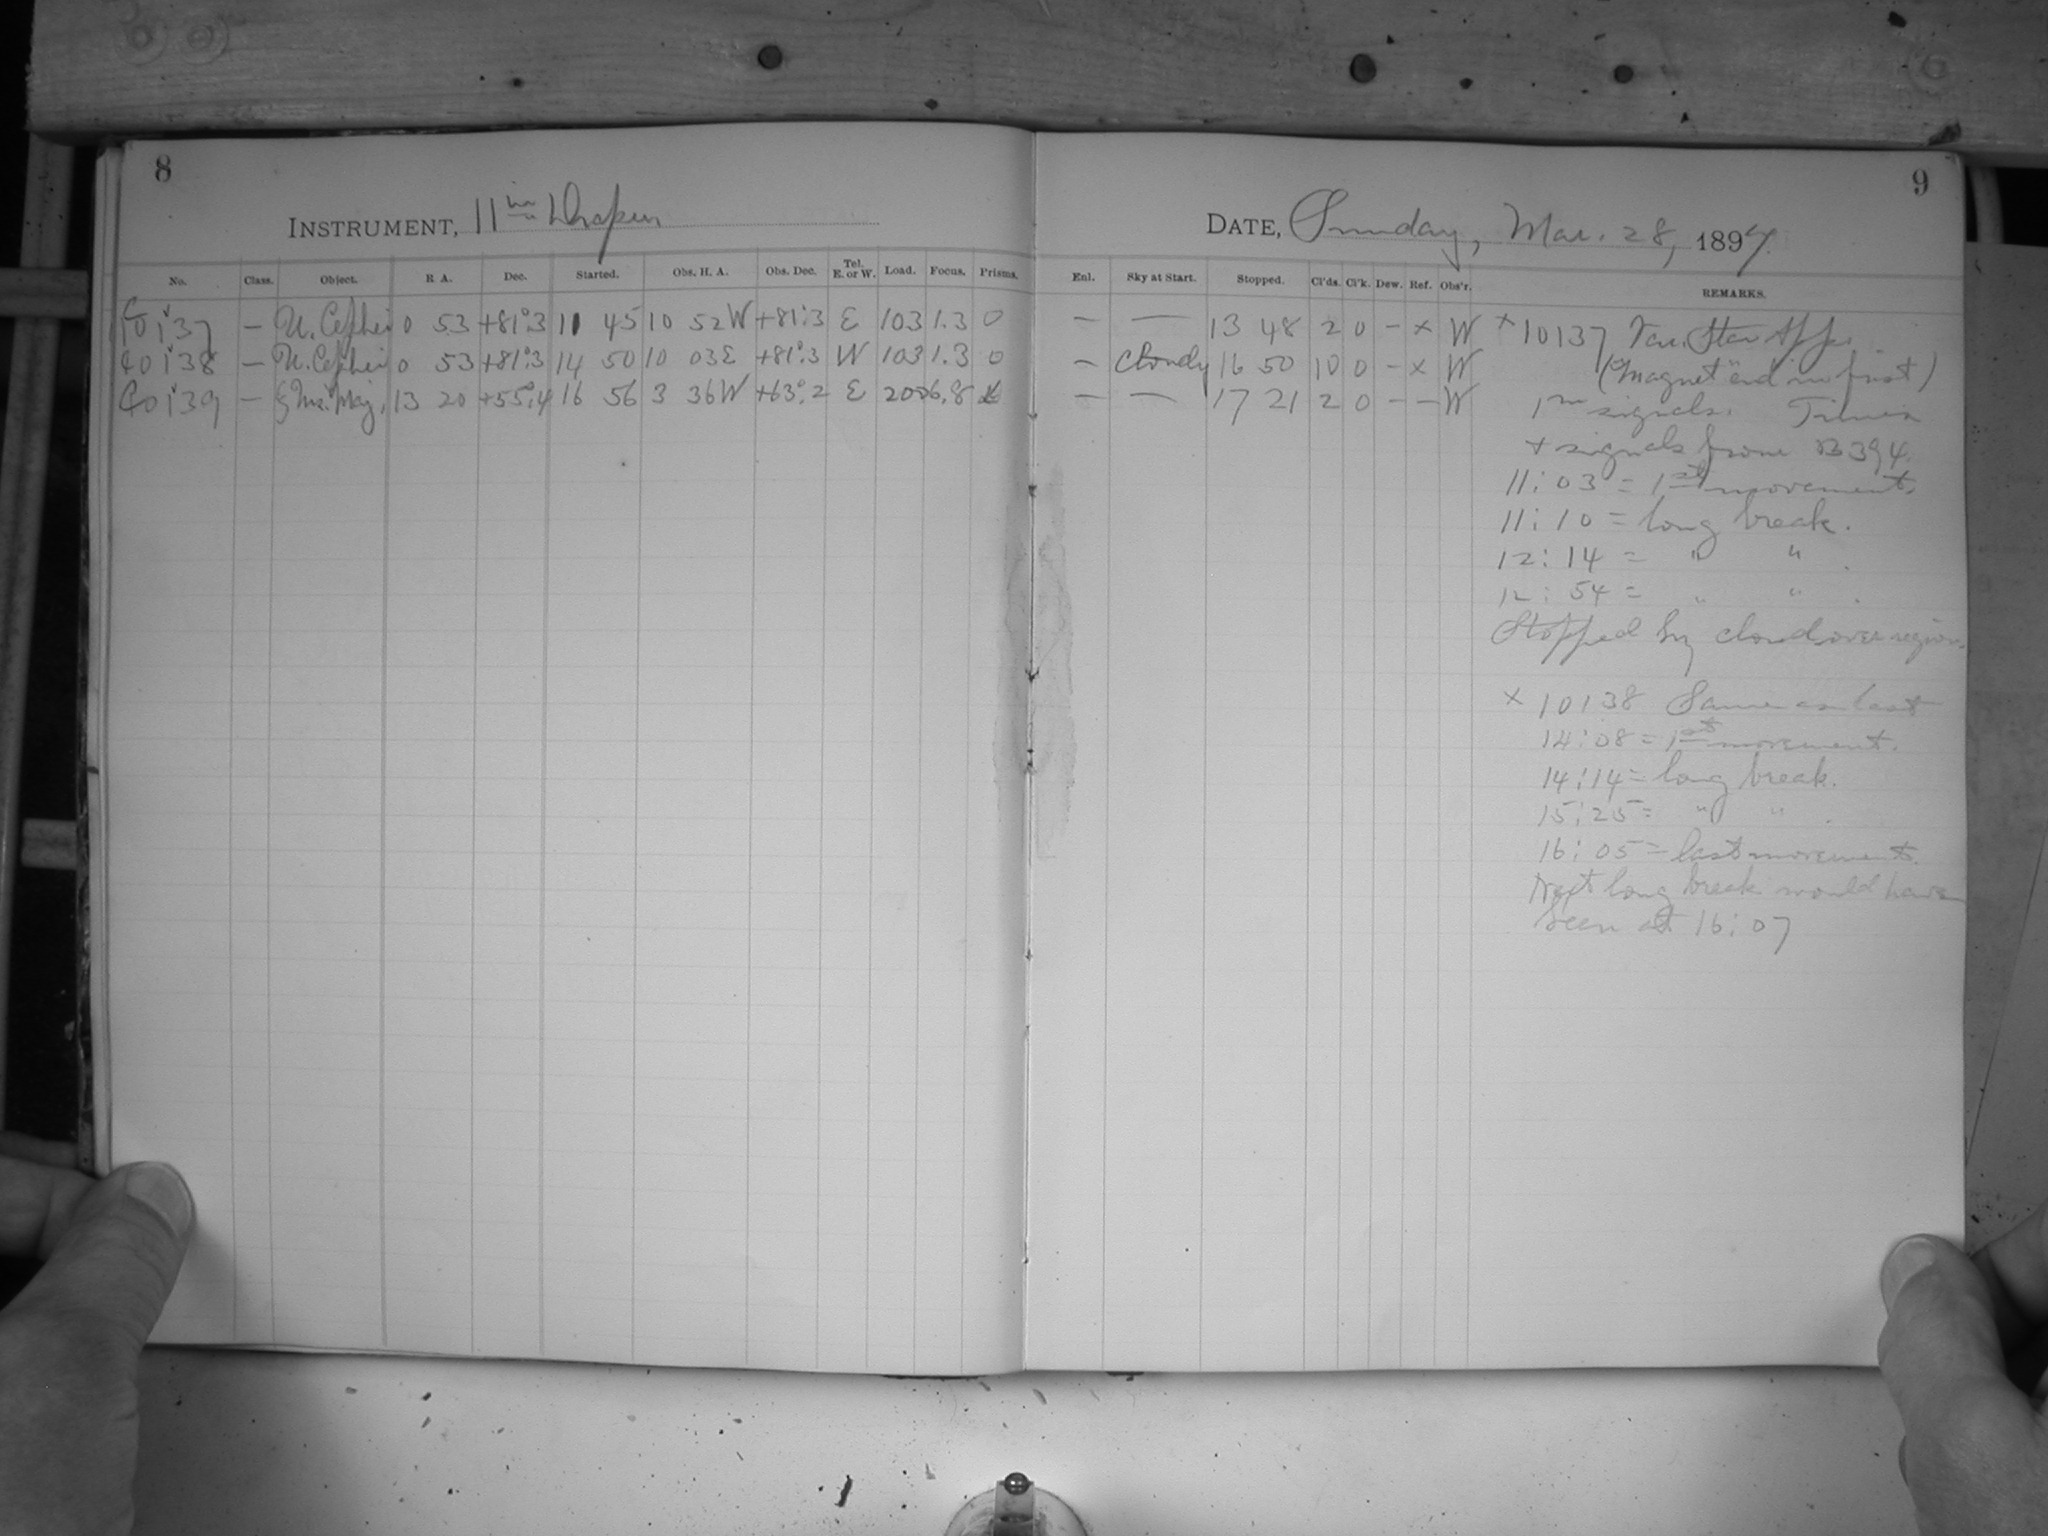 8
INSTRUMENT, 11 in Draper
No. Class. Object. R A. Dec. Started. Obs. H. A. Obs. Dec. Tel. E. or W. Load. Focus. Prisms.
C 10137 — U. Cephei 0 53 +81°.3 11 45 10 52 W +81°.3 E 103 1.3 0
C 10138 — U. Cephei 0 53 +81°.3 14 50 10 03 E +81°.3 W 103 1.3 0
C 10139 — ζ Urs. Maj. 13 20 +55°.4 16 56 3 36 W +63°.2 E 200 6.8
9
DATE, Sunday, Mar. 28, 1897.
Enl. Sky at Start. Stopped. Cl'ds. Cl'k. Dew. Ref. Obs'r. REMARKS.
— — 13 48 2 0 — × W × 10137 Var. Star Appar.
— Cloudy 16 50 10 0 — × W ("Magnet" end in first)
— — 17 21 2 0 — — W 1m signals. Times
+ signals from B 394.
11:03 = 1st movement.
11:10 = long break.
12:14 = " " .
12:54 = " " .
Stopped by cloud over region.
× 10138 Same as last
14:08 = 1st movement.
14:14 = long break.
15:25 = " " .
16:05 = last movement.
Next long break would have
been at 16:07